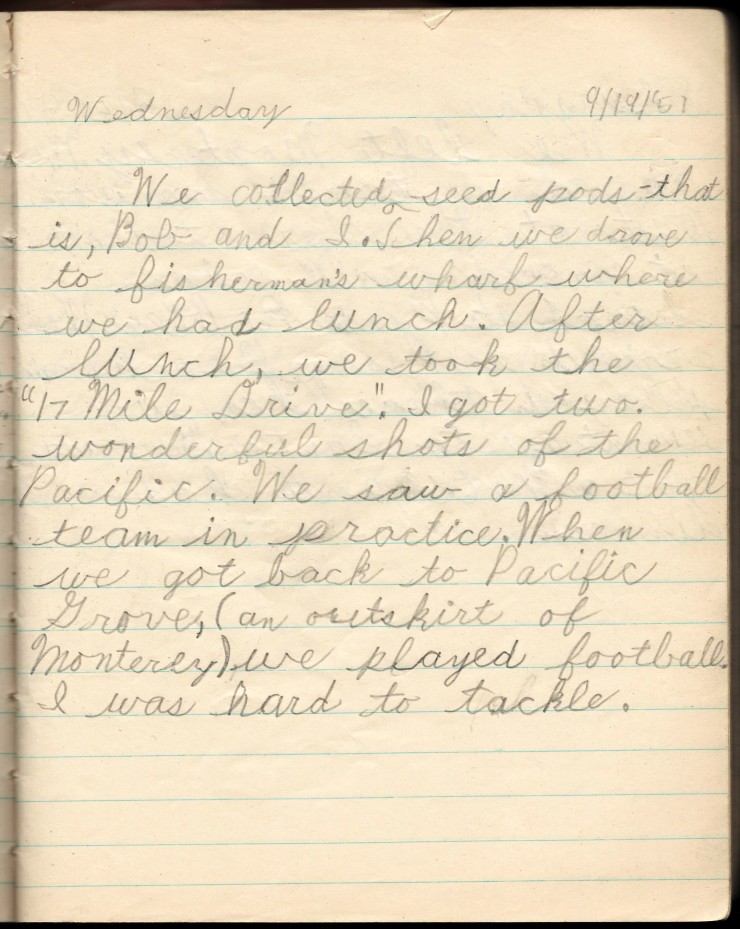 Wednesday 9/19/51
We collected seed pods-that
is, Bob and I. Then we drove
to fisherman's wharf where
we had lunch. After
lunch, we took the
"17 Mile Drive". I got two
wonderful shots of the
Pacific. We saw a football
team in practice. When
we got back to Pacific
Grove, (an outskirt of
Monterey) we played football.
I was hard to tackle.